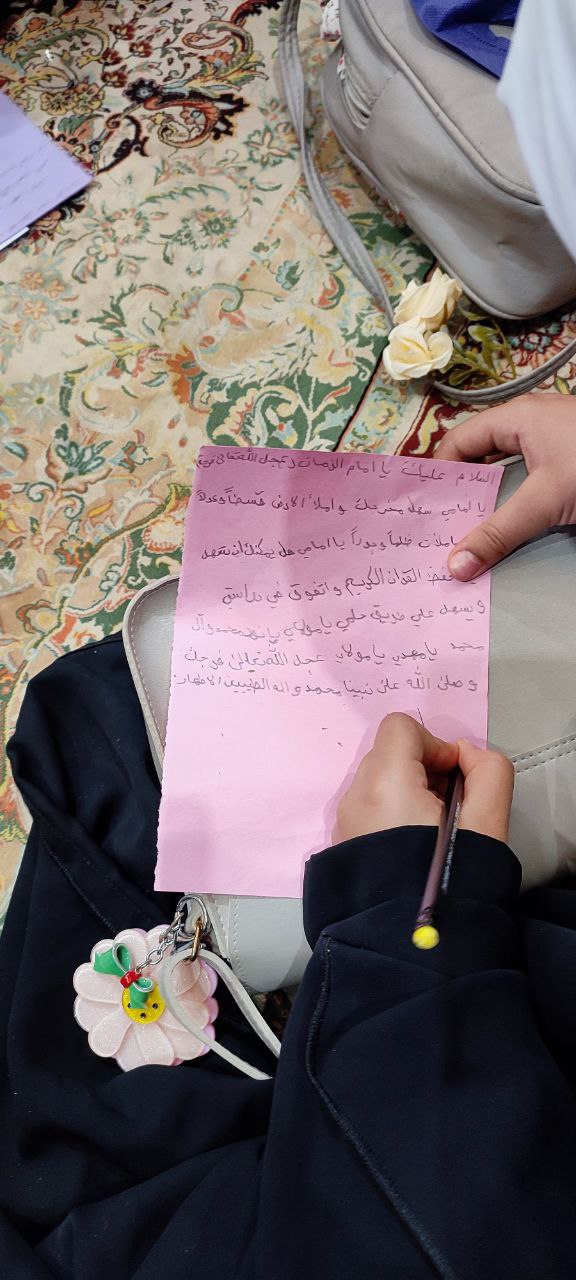 السلام عليك يا امام الزمان (عجل الله تعالى فرجه
يا امامي سهل مخرجك واملأ الارض قسطاً وعدلاً
ملئت ظلماً وجوراً يا امامي هل يمكنك ان تسهل
حفظ القران الكريم واتفوق في دراستي
ويسهل علي طريق حلمي يا مولاي بحق محمد وآل
محمد يا مهدي يا مولاي عجل الله تعالى فرجك
وصلى الله على نبينا محمد واله الطيبين الاطهار